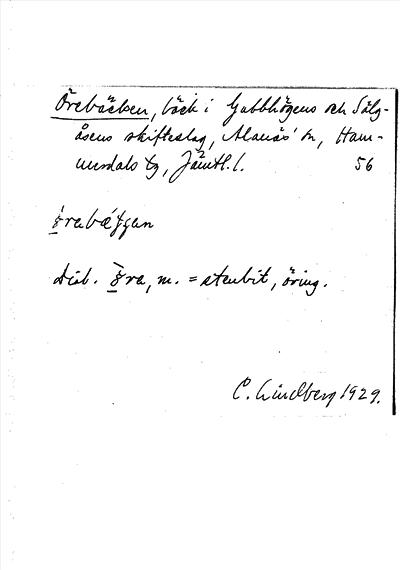 Örebäcken, bäck i Gubbhögens och Sälg-
åsens skifteslag, Alanäs' sn, Ham-
merdals tg, Jämtl. l. 56
Dial. ra, m. = stenbit, öring.
C. Lindberg 1929.